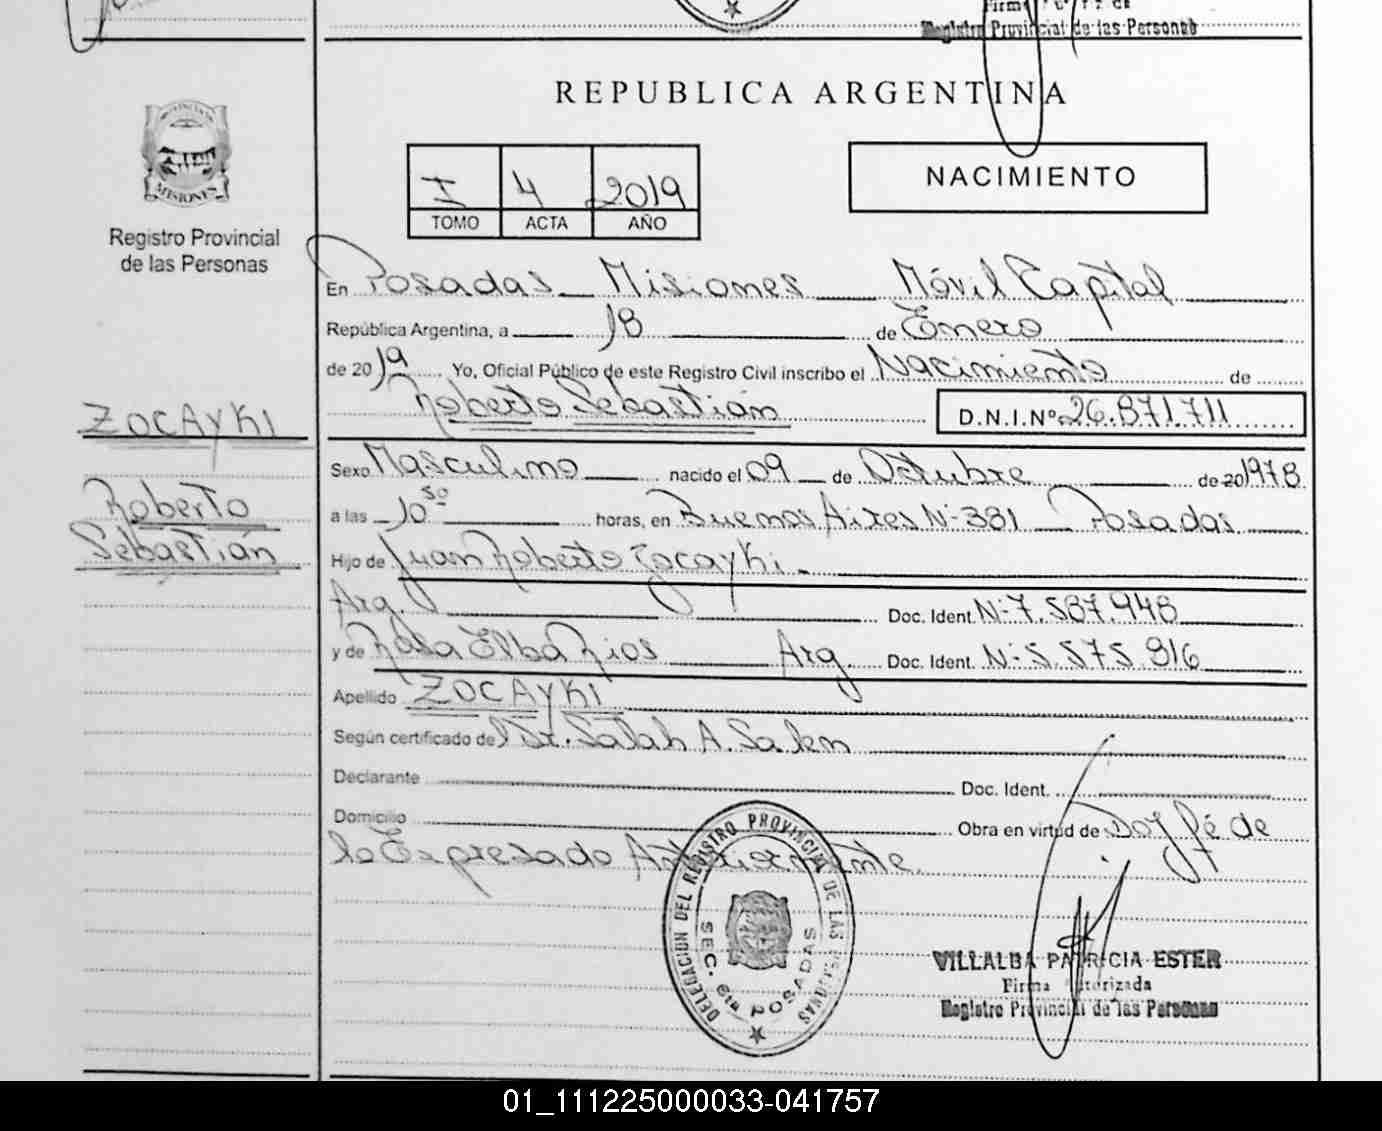 Registro Provincial de las Personas
REPUBLICA ARGENTINA
PROVINCIA DE
MISIONES
Registro Provincial
de las Personas
I 4 2019
TOMO ACTA AÑO
NACIMIENTO
En Posadas Misiones Móvil Capital
República Argentina, a 18 de Enero
de 2019 Yo, Oficial Público de este Registro Civil inscribo el Nacimiento de
Roberto Sebastián D.N.I.Nº 26.871.711
ZOCAYKI
Roberto
Sebastián
Sexo Masculino nacido el 09 de Octubre de 20 1978
a las 10 30 horas, en Buenos Aires Nº 381 Posadas
Hijo de Juan Roberto Zocayki.
Arg. Doc. Ident. Nº 7.587.948
y de Rosa Elba Rios Arg. Doc. Ident. Nº 5.575.816
Apellido ZOCAYKI
Según certificado del Dr. Salah A. Salem
Declarante Doc. Ident.
Domicilio Obra en virtud de Doy fé de
lo Expresado Anteriormente.
DELEGACION DEL REGISTRO PROVINCIAL DE LAS PERSONAS
SEC. 6ta POSADAS
VILLALBA PATRICIA ESTER
Firma Autorizada
Registro Provincial de las Personas
01_111225000033-041757